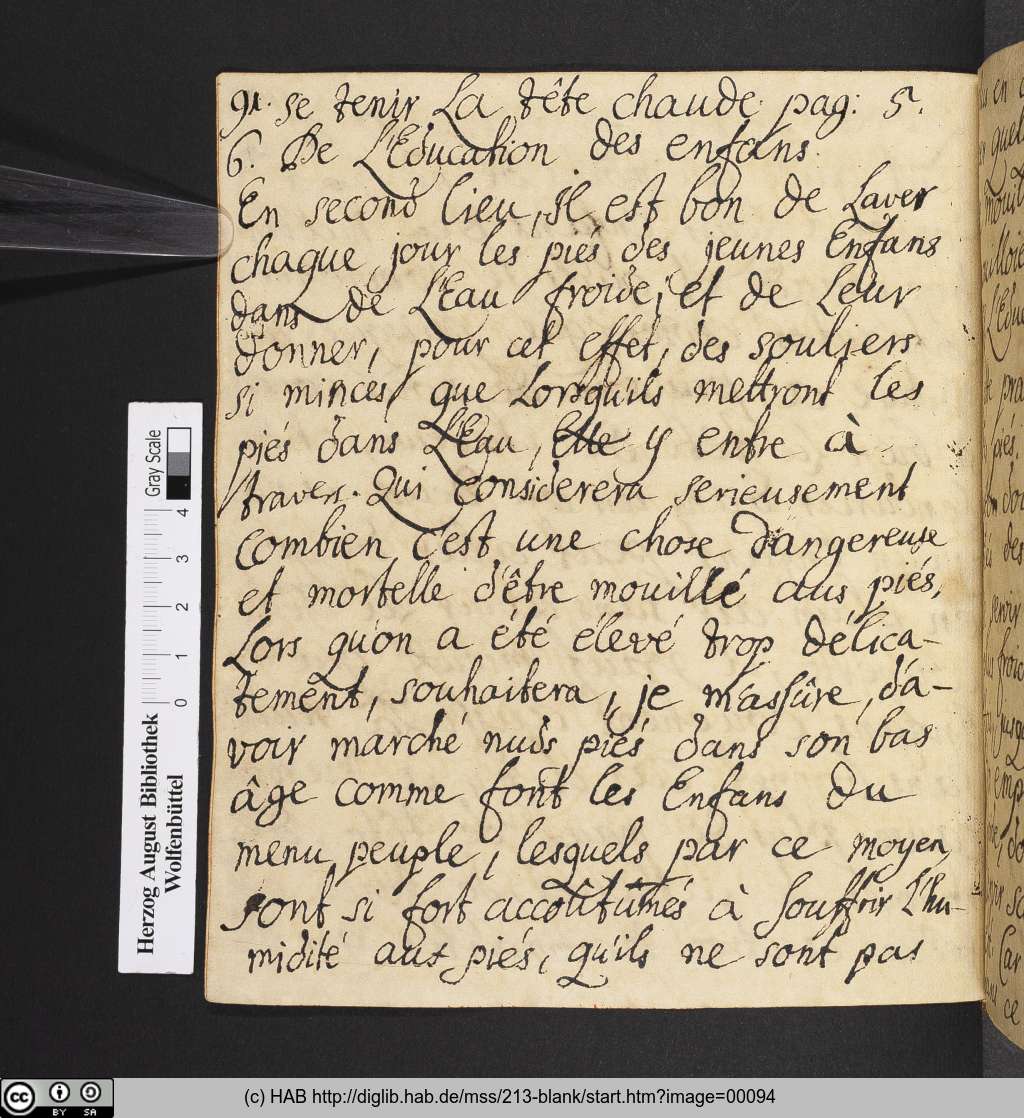 91. se tenir La tête chaude. pag: 5.
6. De L'Education des enfans.
En second lieu, il est bon de Laver
chaque jour les piés des jeunes Enfans
dans de L'Eau froide; et de Leur
donner, pour cet effet, des souliers
si minces, que Lorsqu'ils mettront les
piés dans L'Eau, Elle y entre à
travers. Qui considerera serieusement
combien c'est une chose dangereuse
et mortelle d'être mouillé aus piés,
Lors qu'on a été élevé trop délica-
tement, souhaitera, je m'assûre, d'a-
voir marché nuds piés dans son bas
âge comme font les Enfans du
menu peuple, lesquels par ce moyen
sont si fort accoûtumés à souffrir l'hu-
midité aus piés, qu'ils ne sont pas
Herzog August Bibliothek
Wolfenbüttel
Gray Scale
0 1 2 3 4
cc BY SA
(c) HAB http://diglib.hab.de/mss/213-blank/start.htm?image=00094